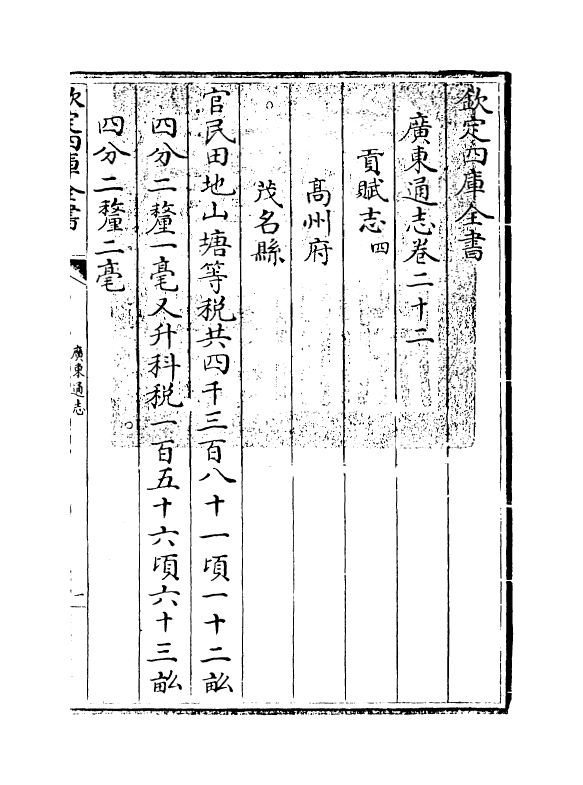 欽定四庫全書
廣東通志卷二十二
貢賦志四
高州府
茂名縣
官民田地山塘等税共四千三百八十一頃一十二畝
四分二釐一毫又升科税一百五十六頃六十三畝
四分二釐二毫
欽定四庫全書
廣東通志